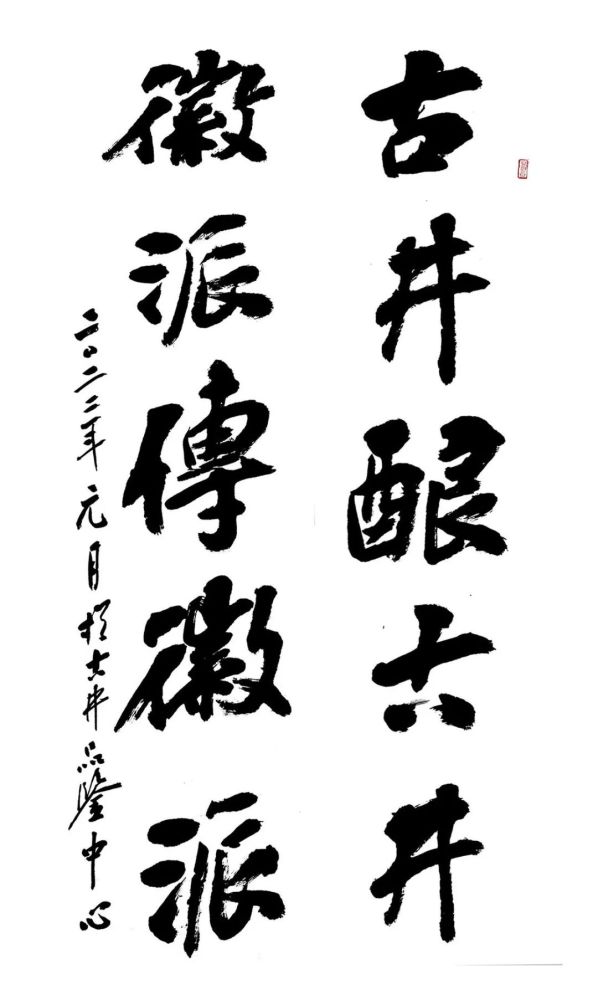 古井酿古井
徽派傳徽派
二〇二二年元月於古井品鑒中心